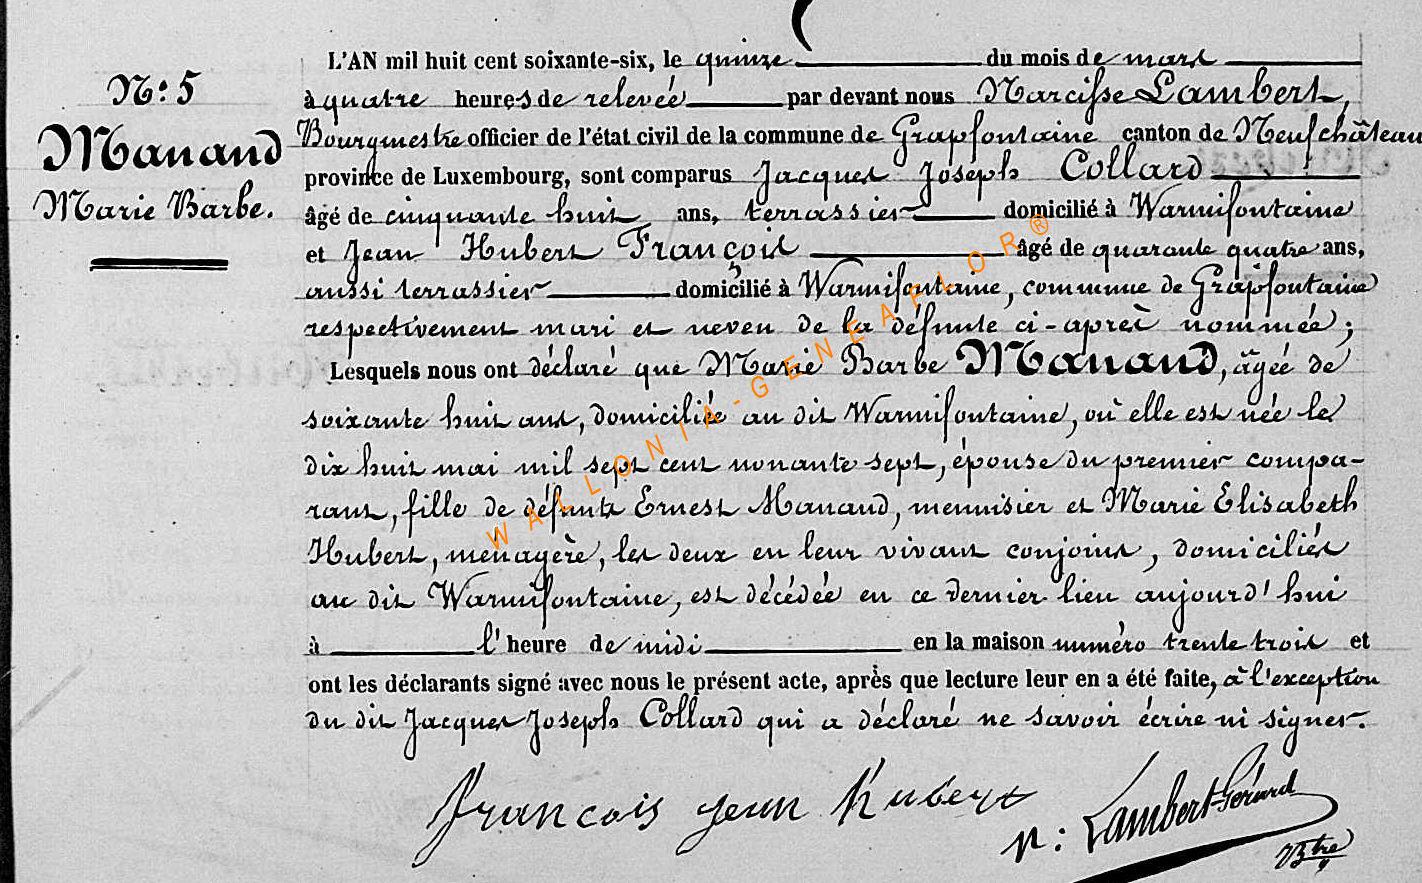 N.º 5
Manand
Marie Barbe.
L'AN mil huit cent soixante-six, le quinze du mois de mars
à quatre heures de relevée par devant nous Narcisse Lambert,
Bourgmestre officier de l'état civil de la commune de Grapfontaine canton de Neufchâteau
province de Luxembourg, sont comparus Jacques Joseph Collard
âgé de cinquante huit ans, terrassier domicilié à Warmifontaine
et Jean Hubert François âgé de quarante quatre ans,
aussi terrassier domicilié à Warmifontaine, commune de Grapfontaine
respectivement mari et neveu de la défunte ci-après nommée ;
Lesquels nous ont déclaré que Marie Barbe Manand, âgée de
soixante huit ans, domiciliée au dit Warmifontaine, où elle est née le
dix huit mai mil sept cent nonante sept, épouse du premier compa-
rant, fille de défunts Ernest Manand, menuisier et Marie Elisabeth
Hubert, ménagère, les deux en leur vivant conjoints, domiciliés
au dit Warmifontaine, est décédée en ce dernier lieu aujourd'hui
à l'heure de midi en la maison numéro trente trois et
ont les déclarants signé avec nous le présent acte, après que lecture leur en a été faite, à l'exception
du dit Jacques Joseph Collard qui a déclaré ne savoir écrire ni signer.
Francois jean hubert
N : Lambert-Gérard
Btre
WALLONIA-GENEAFLOR®